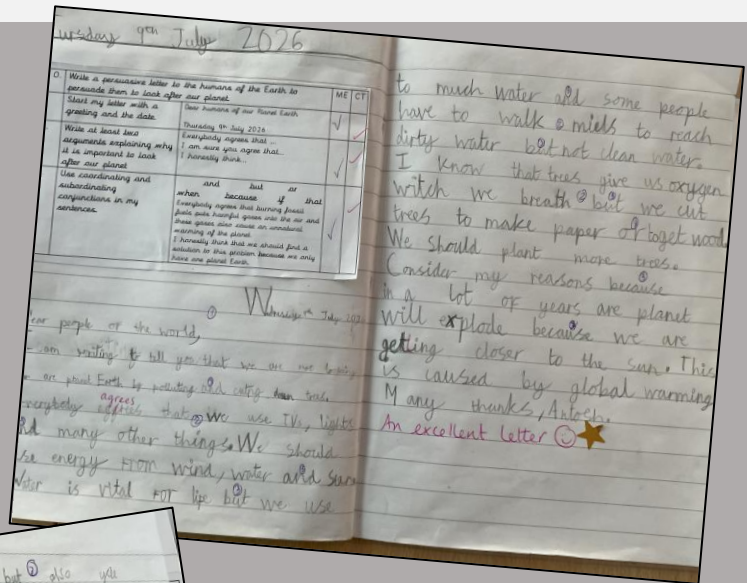 ursday 9th July 2026
O. Write a persuasive letter to the humans of the Earth to persuade them to look after our planet
ME CT
Start my letter with a greeting and the date.
Dear humans of our Planet Earth
Thursday 9th July 2026
Write at least two arguments explaining why it is important to look after our planet
Everybody agrees that ...
I am sure you agree that...
I honestly think...
Use coordinating and subordinating conjunctions in my sentences.
and but or
when because if that
Everybody agrees that burning fossil fuels puts harmful gases into the air and these gases also cause an unnatural warming of the planet.
I honestly think that we should find a solution to this problem because we only have one planet Earth.
July 2026
ear people of the world,
am writing to tell you that we are not
are planet Earth by polluting and trees
verybody agrees that we use TVs, lights
nd many other things. We should
se energy from wind, water and sun
Water is vital for life but we use
to much water and some people
have to walk miels to reach
dirty water but not clean water.
I know that trees give us oxygen
witch we breath but we cut
trees to make paper or to get wood
We should plant more trees.
Consider my reasons because
in a lot of years are planet
will explode because we are
getting closer to the sun. This
is caused by global warming
Many thanks,
An excellent letter
but also you